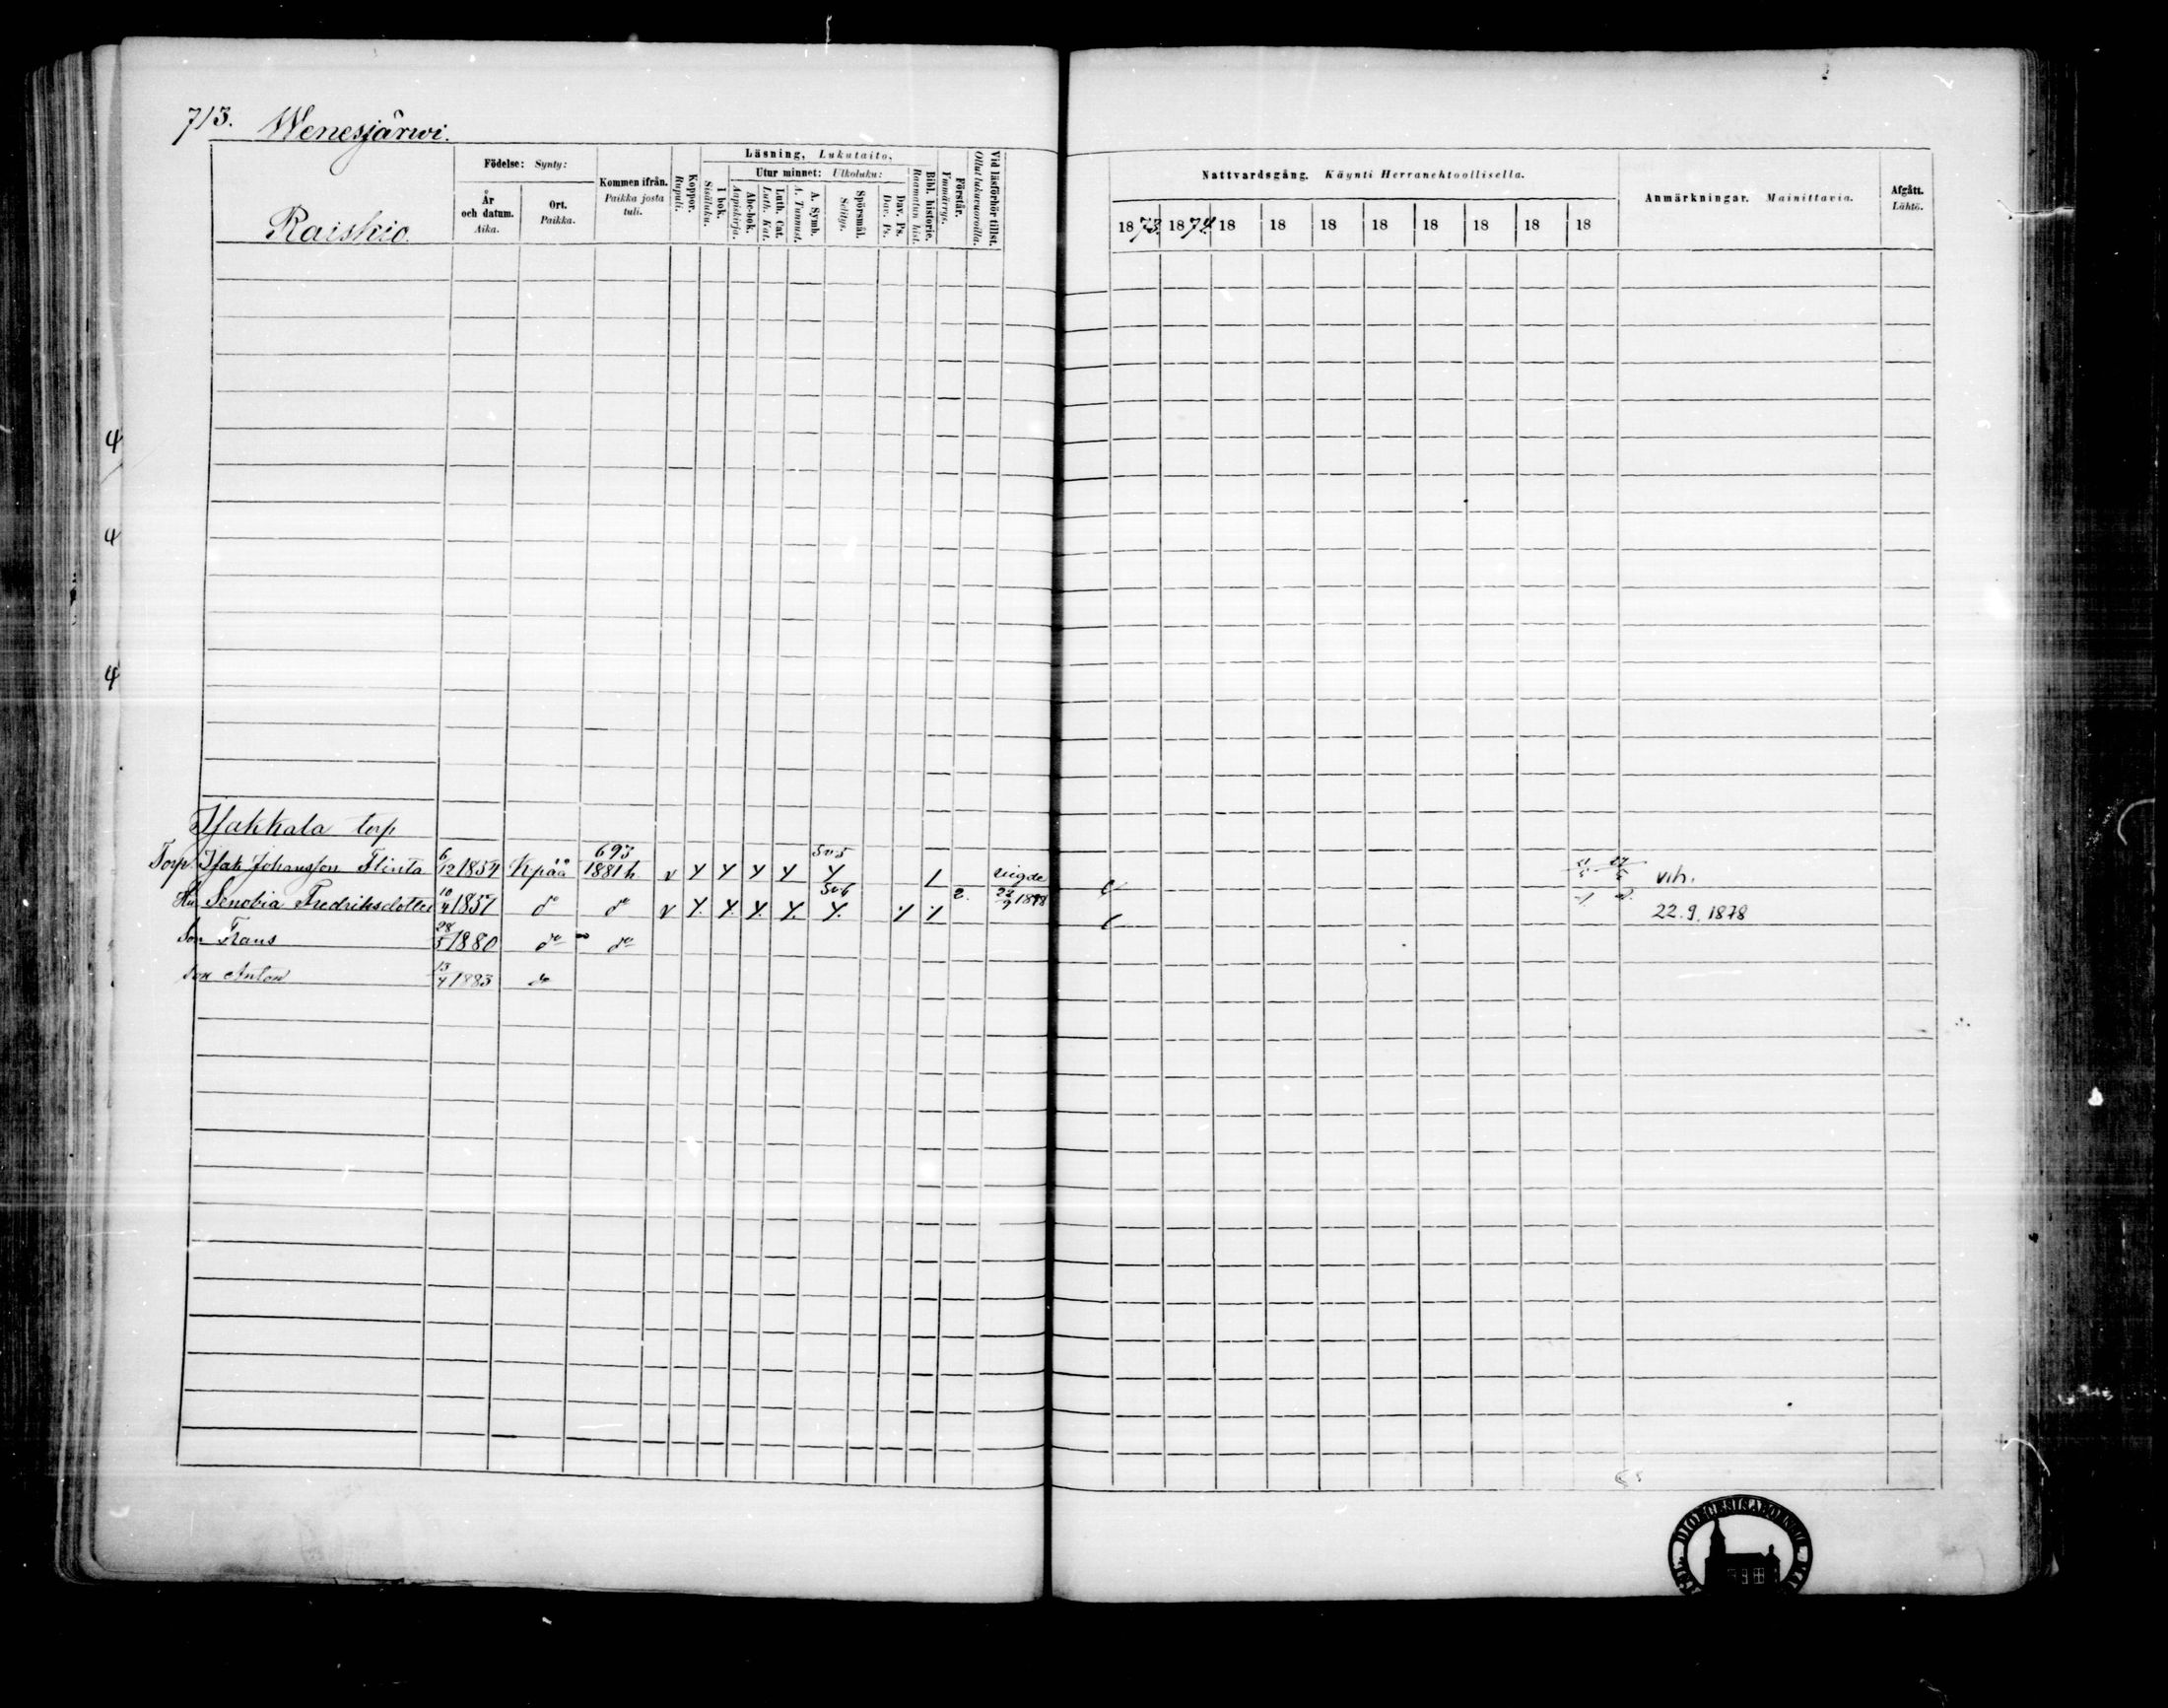 713. Wenesjärwi.
Raiskio.
Födelse: Synty:
År och datum. Aika.
Ort. Paikka.
Kommen ifrån. Paikka josta tuli.
Koppor. Rupuli.
Läsning, Lukutaito,
I bok. Sisäluku.
Utur minnet: Ulkoluku:
Abc-bok. Aapiskirja.
Luth. Cat. Luth. Kat.
A. Symb. A. Tunnust.
Spörsmål. Selitys.
Dav. Ps. Dav. Ps.
Bibl. historie. Raamatun hist.
Förstår. Ymmärrys.
Vid läsförhör tillst. Ollut lukuvuoroilla.
Nattvardsgång. Käynti Herranehtoollisella.
1873. 1874. 18 18 18 18 18 18 18 18
Anmärkningar. Mainittavia.
Afgått. Lähtö.
4
4
4
Isakkala torp
Torp. Isak Johansson Flinta 6/12 1854 Kpää 693 1881 h v Y Y Y Y 505 Y vigde vih.
Hu Senobia Fredriksdotter 10/4 1857 do do v Y. Y. Y. Y. 506 Y. 2. 22/9 1878 22.9.1878
Son Frans 28/5 1880 do do
Son Anton 13/4 1883 do